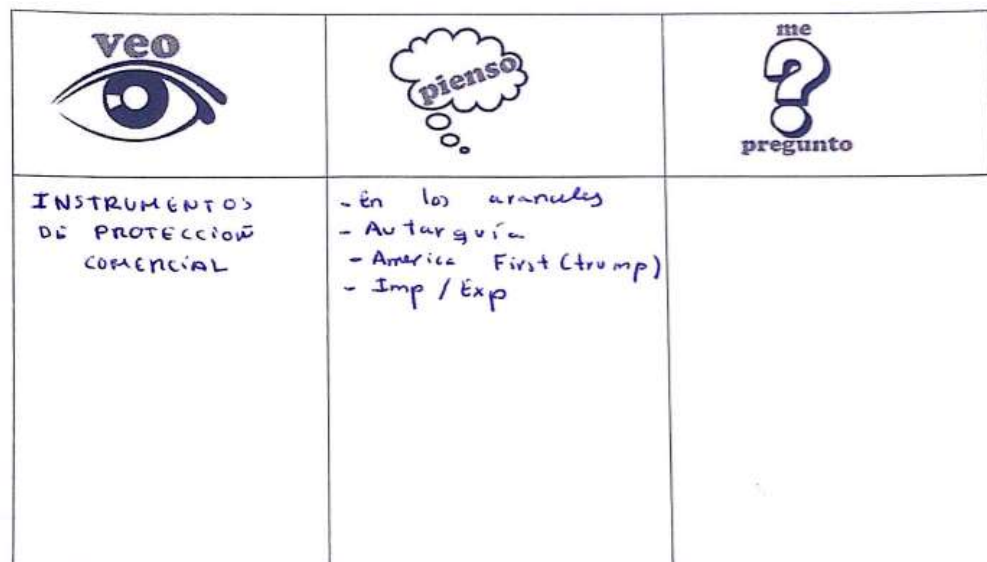 veo
pienso
me
pregunto
INSTRUMENTOS
DE PROTECCIÓN
COMERCIAL
- En los aranceles
- Autarquía
- America First (trump)
- Imp / Exp